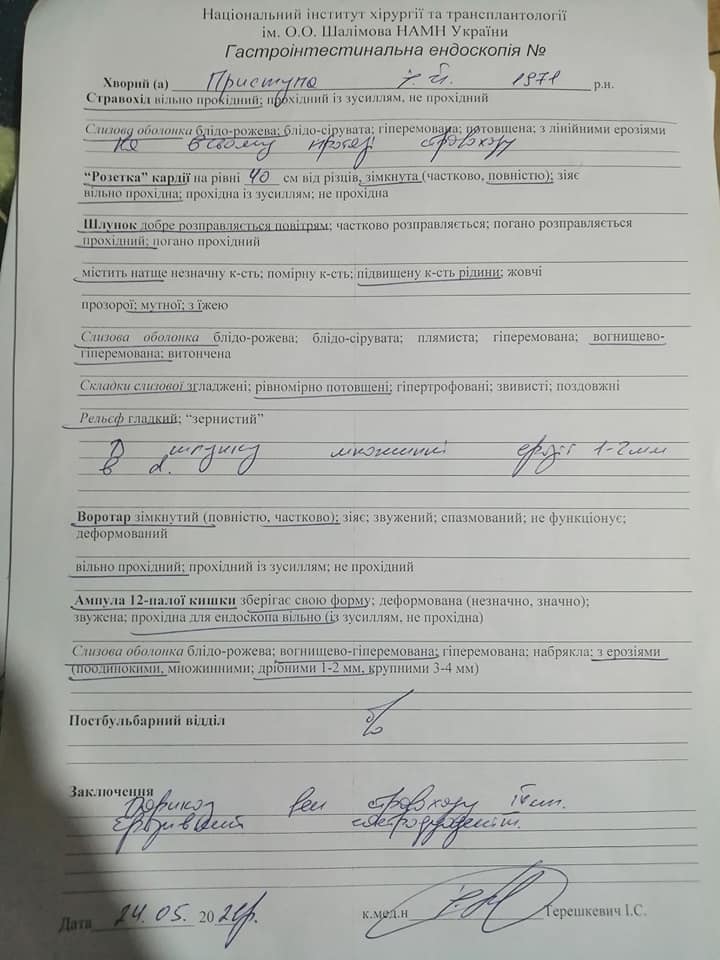 Національний інститут хірургії та трансплантології
ім. О.О. Шалімова НАМН України
Гастроінтестинальна ендоскопія №
Хворий (а) Приступа 1971 р.н.
Стравохід вільно прохідний; прохідний із зусиллям, не прохідний
Слизова оболонка блідо-рожева; блідо-сірувата; гіперемована; потовщена; з лінійними ерозіями
на всьому протязі стравоходу
“Розетка” кардії на рівні 40 см від різців, зімкнута (частково, повністю); зіяє
вільно прохідна; прохідна із зусиллям; не прохідна
Шлунок добре розправляється повітрям; частково розправляється; погано розправляється
прохідний; погано прохідний
містить натще незначну к-сть; помірну к-сть; підвищену к-сть рідини; жовчі
прозорої; мутної; з їжею
Слизова оболонка блідо-рожева; блідо-сірувата; плямиста; гіперемована; вогнищево-
гіперемована; витончена
Складки слизової згладжені; рівномірно потовщені; гіпертрофовані; звивисті; поздовжні
Рельєф гладкий; “зернистий”
В шлунку множинні ерозії 1-2 мм
в
Воротар зімкнутий (повністю, частково); зіяє; звужений; спазмований; не функціонує;
деформований
вільно прохідний; прохідний із зусиллям; не прохідний
Ампула 12-палої кишки зберігає свою форму; деформована (незначно, значно);
звужена; прохідна для ендоскопа вільно (із зусиллям, не прохідна)
Слизова оболонка блідо-рожева; вогнищево-гіперемована; гіперемована; набрякла; з ерозіями
(поодинокими, множинними; дрібними 1-2 мм, крупними 3-4 мм)
Постбульбарний відділ
Заключення
Варикоз вен стравоходу IV ст.
Ерозивний гастродуоденіт.
Дата 24.05. 2021р. к.мед.н Терешкевич І.С.